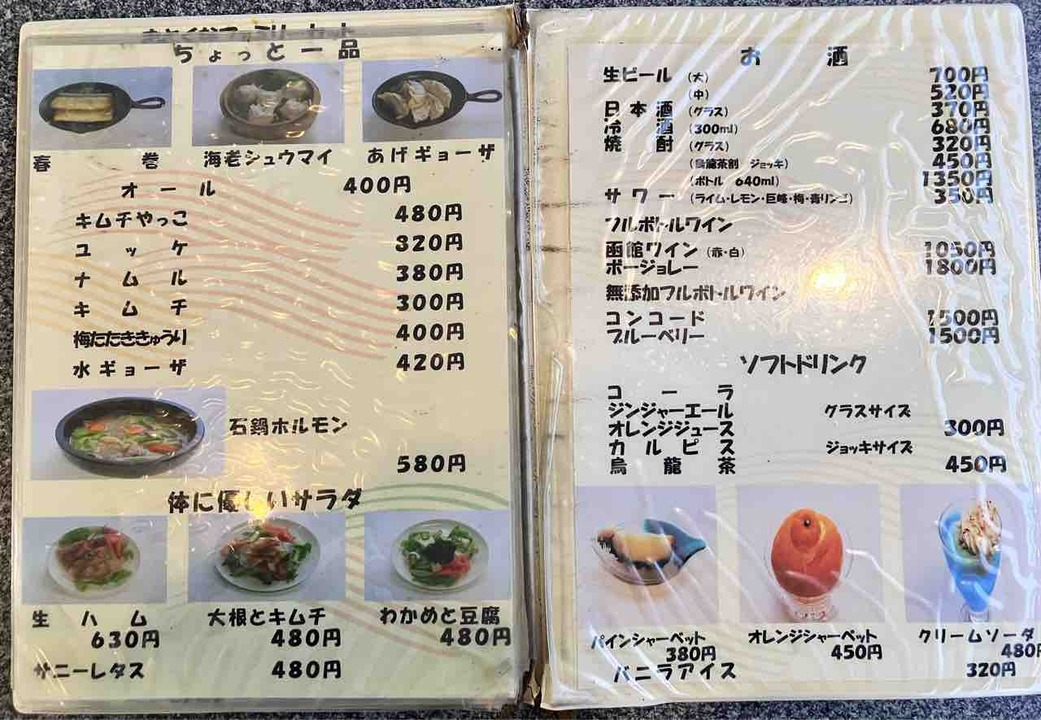 ちょっと一品
春巻 海老シュウマイ あげギョーザ
オール 400円
キムチやっこ 480円
ユッケ 320円
ナムル 380円
キムチ 300円
梅たたききゅうり 400円
水ギョーザ 420円
石鍋ホルモン
580円
体に優しいサラダ
生ハム 大根とキムチ わかめと豆腐
630円 480円 480円
サニーレタス 480円
お酒
生ビール (大) 700円
(中) 520円
日本酒 (グラス) 370円
冷酒 (300ml) 680円
焼酎 (グラス) 320円
(烏龍茶割 ジョッキ) 450円
(ボトル 640ml) 1350円
サワー (ライム・レモン・巨峰・梅・青リンゴ) 350円
フルボトルワイン
函館ワイン (赤・白) 1050円
ボージョレー 1800円
無添加フルボトルワイン
コンコード 1500円
ブルーベリー 1500円
ソフトドリンク
コーラ
ジンジャーエール グラスサイズ
オレンジジュース 300円
カルピス ジョッキサイズ
烏龍茶 450円
パインシャーベット オレンジシャーベット クリームソーダ
380円 450円 480円
バニラアイス 320円